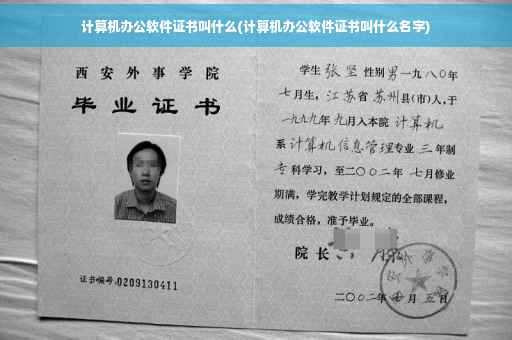 计算机办公软件证书叫什么(计算机办公软件证书叫什么名字)
西安外事学院
毕业证书
证书编号:0209130411
学生 张坚 性别男一九八〇年
七月生，江苏省苏州县(市)人,于
一九九九年九月入本院计算机
系计算机信息管理专业三年制
专科学习，至二〇〇二年七月修业
期满，学完教学计划规定的全部课程，
成绩合格，准予毕业。
院长
二〇〇二年 月五日